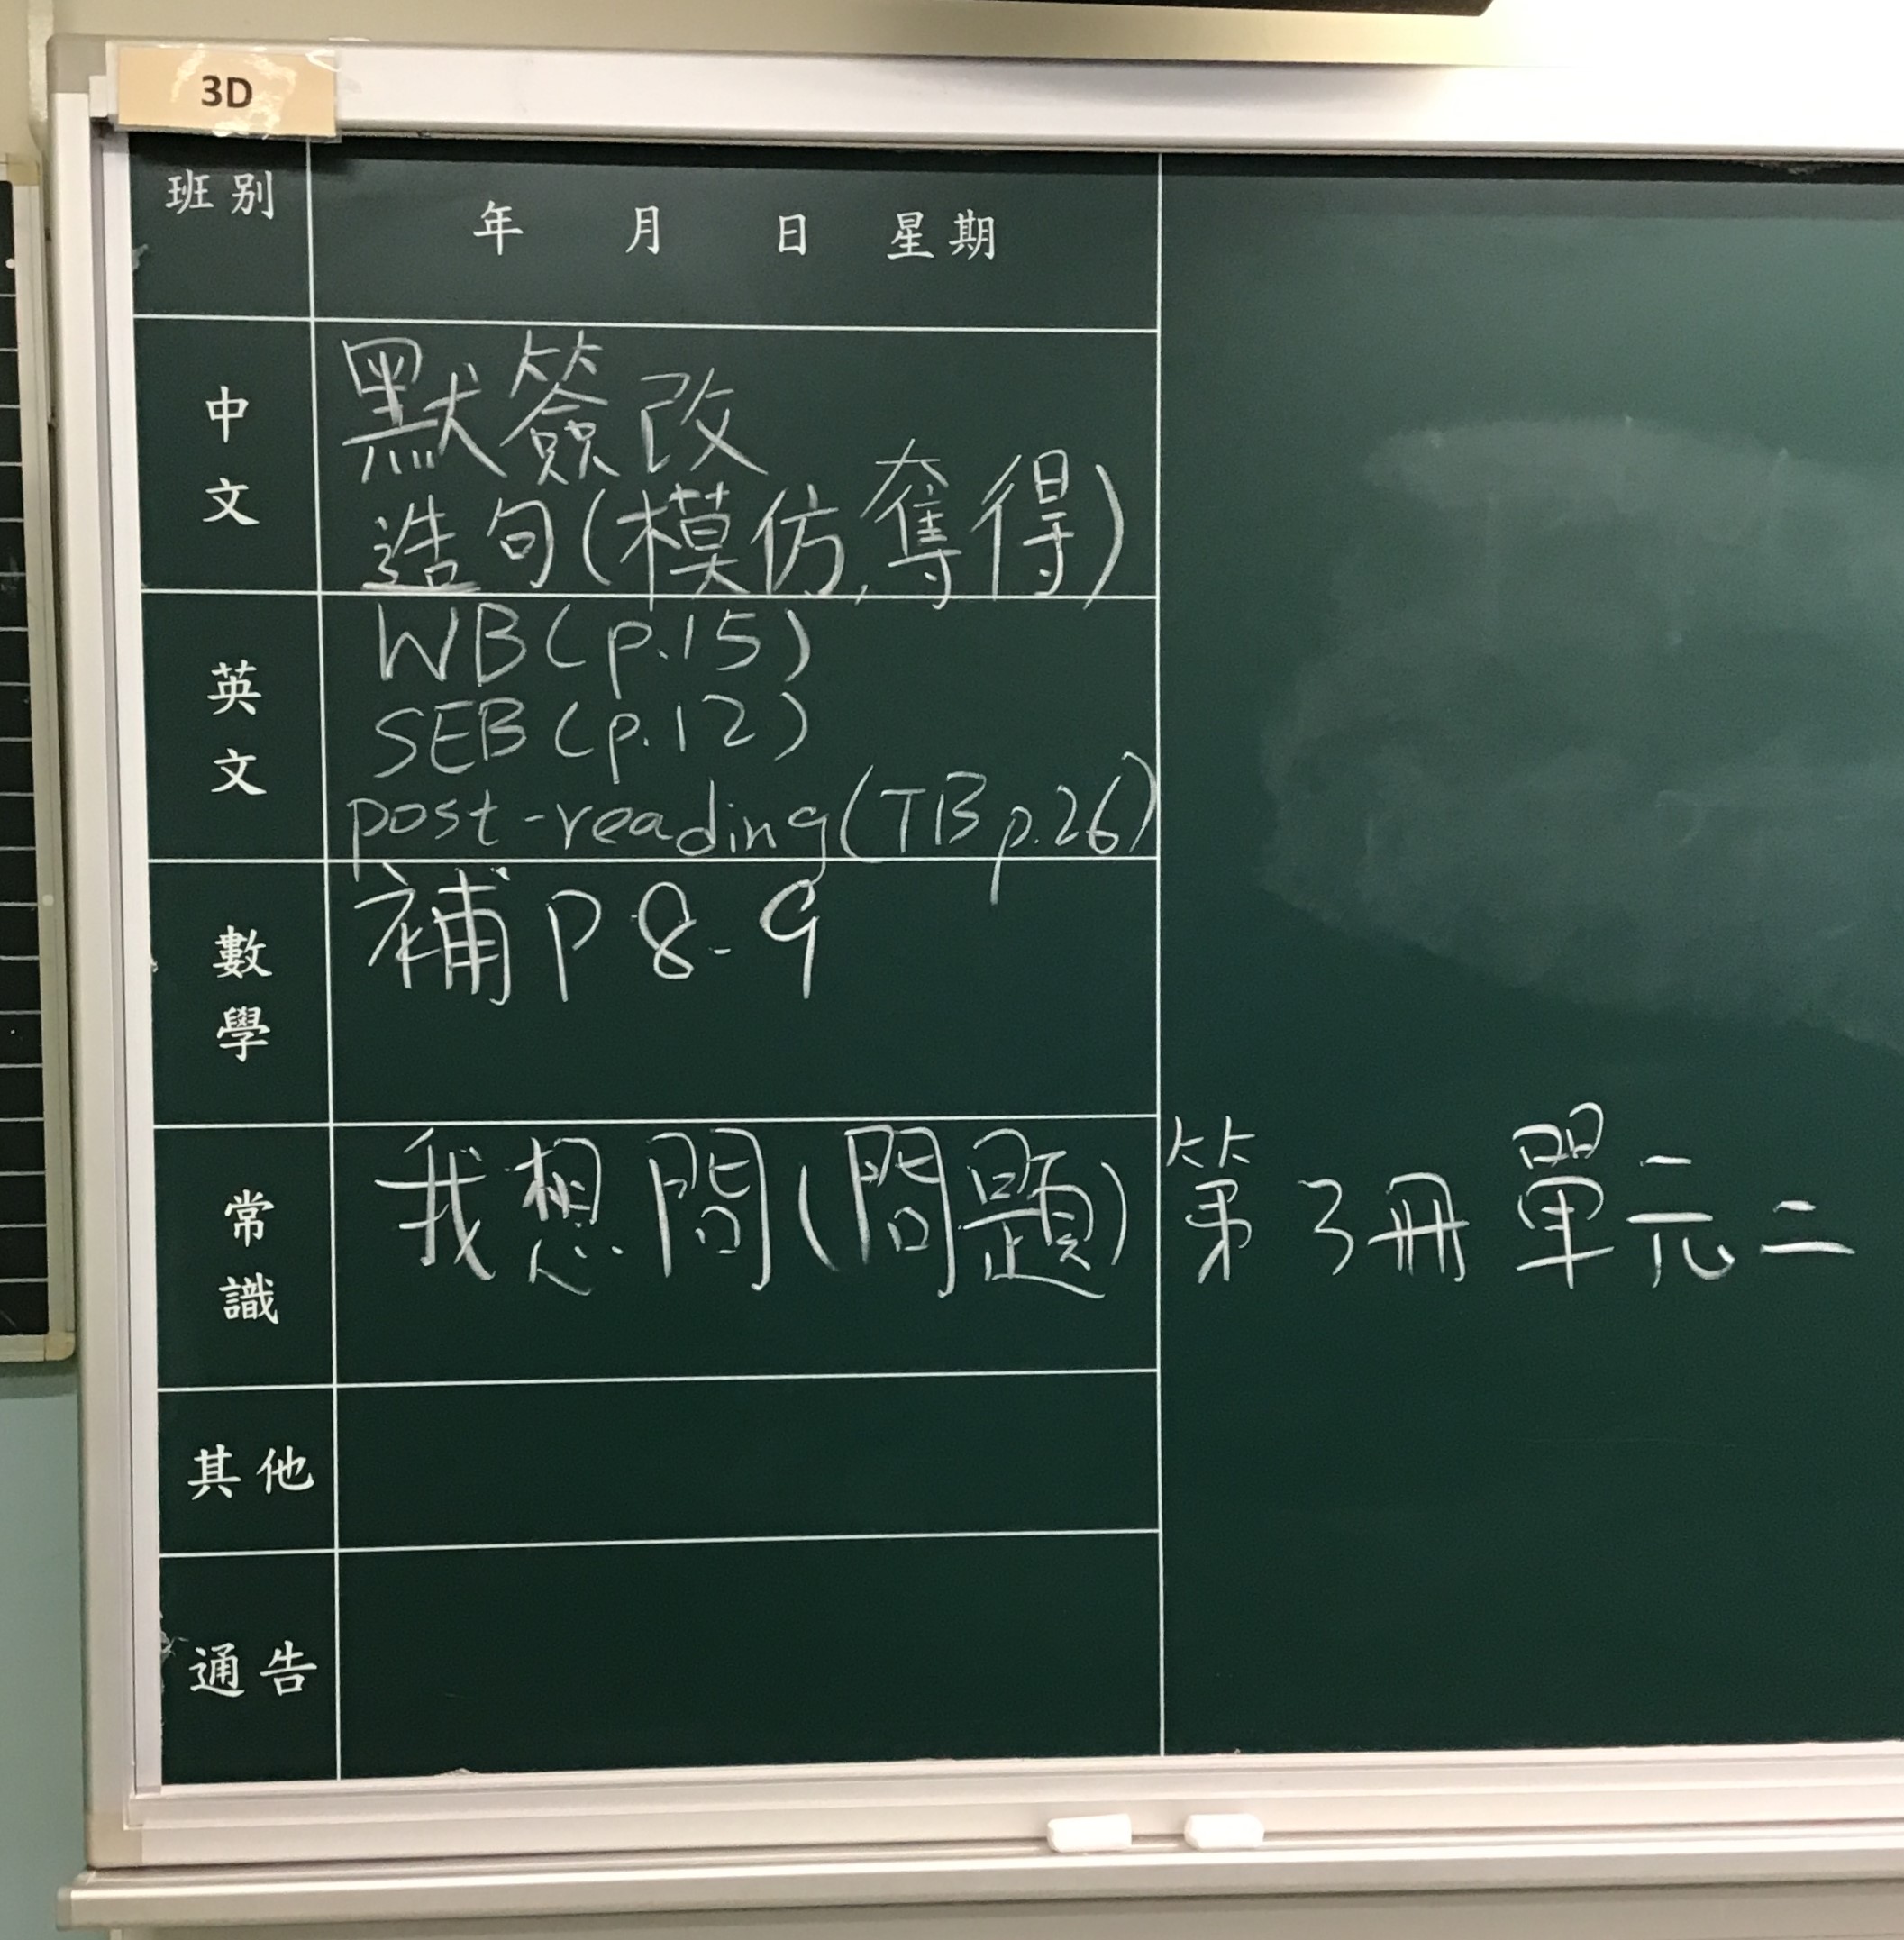 3D
班別
年 月 日 星期
中文
默簽改
造句(模仿,奪得)
英文
WB(p.15)
SEB(p.12)
post-reading(TB p.26)
數學
補P8-9
常識
我想問(問題)第3冊單元二
其他
通告